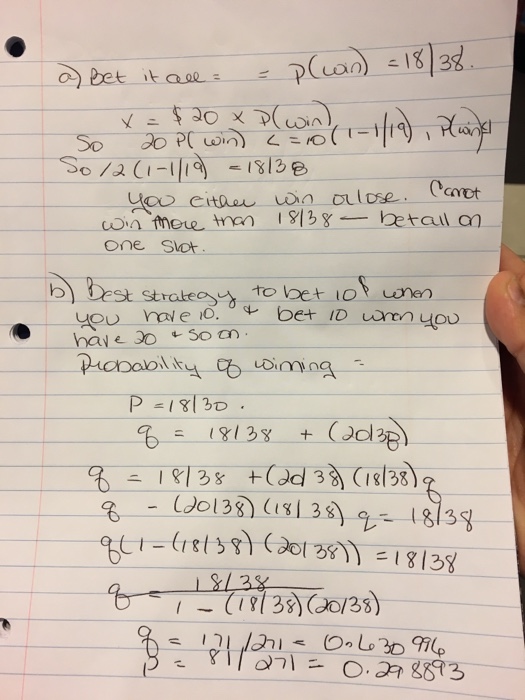 a) Bet it all = = P(win) = 18/38.
X = $20 x P(win)
So 20 P(win) <= 10(1-1/19), P(win)≤
So 1/2 (1-1/19) = 18/38
you either win or lose. Cannot
win more than 18/38 — bet all on
one slot.
b) Best strategy to bet 10$ when
you have 10. & bet 10 when you
have 20 & so on.
Probability of winning =
P = 18/30.
q = 18/38 + (20/38)
q = 18/38 + (20/38) (18/38) q
q - (20/38) (18/38) q = 18/38
q(1-(18/38) (20/38)) = 18/38
q = 18/38 / 1 - (18/38)(20/38)
q = 171/271 = 0.630996
p = 81/271 = 0.298893